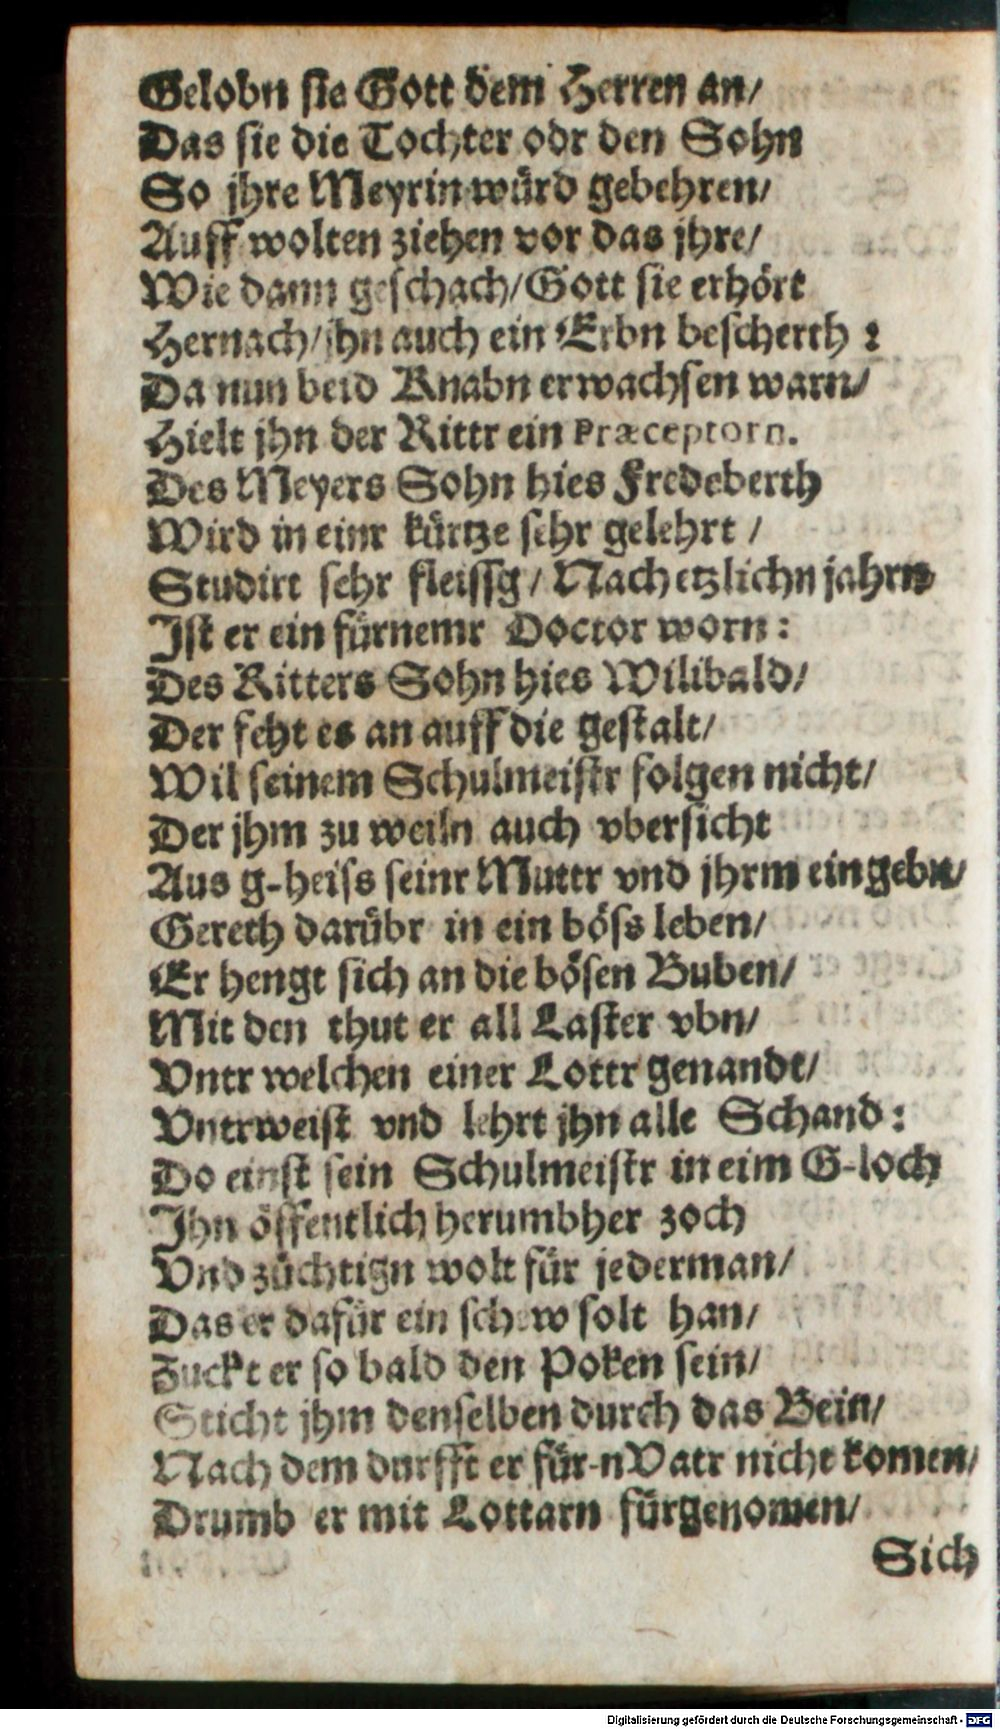 Gelobn sie Gott dem Herren an/
Das sie die Tochter odr den Sohn
So jhre Meyrin würd gebehren/
Auff wolten ziehen vor das jhre/
Wie dann geschach/Gott sie erhört
Hernach/jhn auch ein Erbn bescherth:
Da nun beid Knabn erwachsen warn/
Hielt jhn der Rittr ein Præceptorn.
Des Meyers Sohn hies Fredeberth
Wird in einr kürtze sehr gelehrt /
Studirt sehr fleissg/ Nach etzlichn jahrn
Ist er ein fürnemr Doctor worn:
Des Ritters Sohn hies Wilibald/
Der feht es an auff die gestalt/
Wil seinem Schulmeistr folgen nicht/
Der jhm zu weiln auch vbersicht
Aus g-heiss seinr Muttr vnd jhrm eingebn/
Gereth darübr in ein böss leben/
Er hengt sich an die bösen Buben/
Mit den thut er all Laster vbn/
Vntr welchen einer Lottr genandt/
Vntrweist vnd lehrt jhn alle Schand:
Do einst sein Schulmeistr in eim G-loch
Ihn öffentlich herumbher zoch
Vnd züchtign wolt für jederman/
Das er dafür ein schew solt han/
Zuckt er so bald den Poken sein/
Sticht jhm denselben durch das Bein/
Nach dem durfft er für-n Vatr nicht komen/
Drumb er mit Lottarn fürgenomen/
Sich
Digitalisierung gefördert durch die Deutsche Forschungsgemeinschaft - DFG